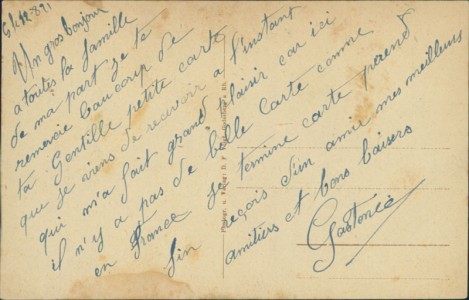 Un gros bonjour
a toutes la famille
de ma part je te
remercie beaucoup de
ta Gentille petite carte
que je viens de recevoir a l'instant
qui m'a fait grand plaisir car ici
il n'y a pas de belle carte comme
en France je termine carte prend
fin reçois d'un amie mes meilleurs
amitiers et bons baisers
Gastonie